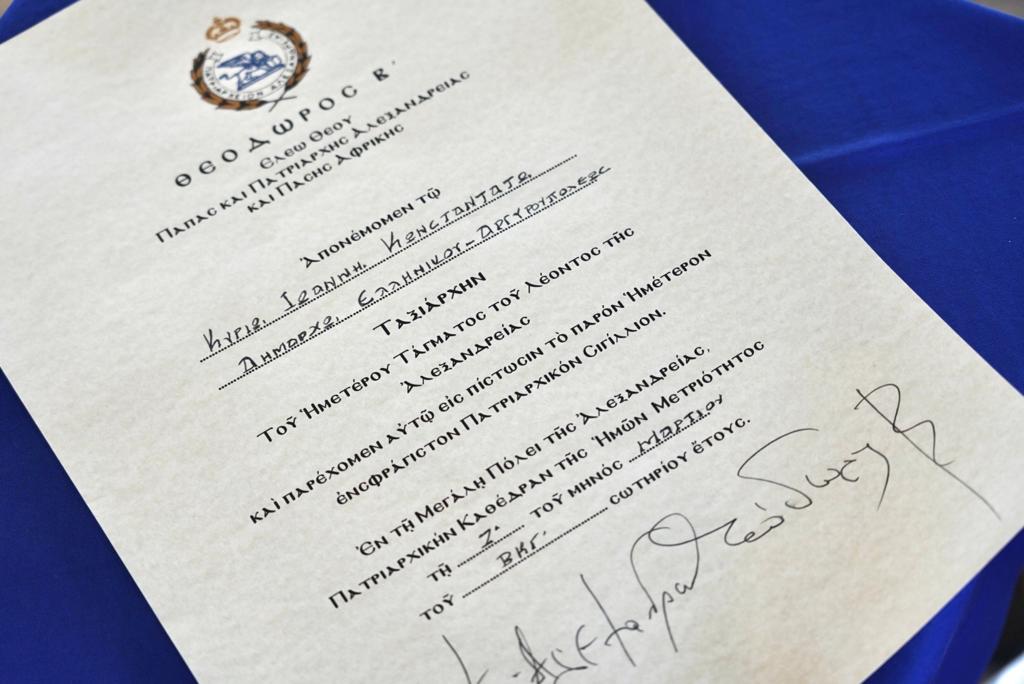 ΘΕΟΔΩΡΟC Β'
ΕΛΕΩ ΘΕΟΥ
ΠΑΠΑC ΚΑΙ ΠΑΤΡΙΑΡΧΗC ΑΛΕΞΑΝΔΡΕΙΑC
ΚΑΙ ΠΑCΗC ΑΦΡΙΚΗC
ἈΠΟΝΈΜΟΜΕΝ ΤΩ͂
ΚΥΡΙΩ, ΙΩΑΝΝΗ, ΚΩΝCΤΑΝΤΑΤΩ
ΔΗΜΑΡΧΩ, ΕΛΛΗΝΙΚΟΥ - ΑΡΓΥΡΟΥΠΟΛΕΩC
ΤΑΞΙΆΡΧΗΝ
ΤΟΥ͂ ἩΜΕΤΈΡΟΥ ΤΆΓΜΑΤΟC ΤΟΥ͂ ΛΈΟΝΤΟC ΤΗ͂C
ἈΛΕΞΑΝΔΡΕΊΑC
ΚΑῚ ΠΑΡΈΧΟΜΕΝ ΑΥ̓ΤΩ͂ ΕἸC ΠΊCΤΩCΙΝ ΤῸ ΠΑΡῸΝ ἩΜΈΤΕΡΟΝ
ἘΝCΦΡΆΓΙCΤΟΝ ΠΑΤΡΙΑΡΧΙΚΌΝ CΙΓΊΛΛΙΟΝ.
ἘΝ ΤΗ͂ ΜΕΓΆΛΗ ΠΌΛΕΙ ΤΗ͂C ἈΛΕΞΑΝΔΡΕΊΑC,
ΠΑΤΡΙΑΡΧΙΚΉΝ ΚΑΘΈΔΡΑΝ ΤΗ͂C ἩΜΩ͂Ν ΜΕΤΡΙΌΤΗΤΟC
ΤΗ͂ Ζ' ΤΟΥ͂ ΜΗΝΌC ΜΑΡΤΙΟΥ
ΤΟΥ͂ ΒΚΓ' CΩΤΗΡΊΟΥ ἜΤΟΥC.